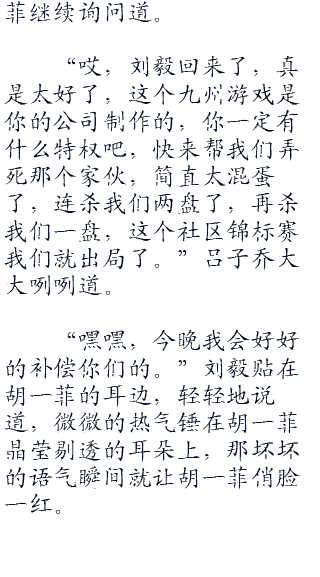 菲继续询问道。
“哎，刘毅回来了，真
是太好了，这个九州游戏是
你的公司制作的，你一定有
什么特权吧，快来帮我们弄
死那个家伙，简直太混蛋
了，连杀我们两盘了，再杀
我们一盘，这个社区锦标赛
我们就出局了。”吕子乔大
大咧咧道。
“嘿嘿，今晚我会好好
的补偿你们的。”刘毅贴在
胡一菲的耳边，轻轻地说
道，微微的热气锤在胡一菲
晶莹剔透的耳朵上，那坏坏
的语气瞬间就让胡一菲俏脸
一红。